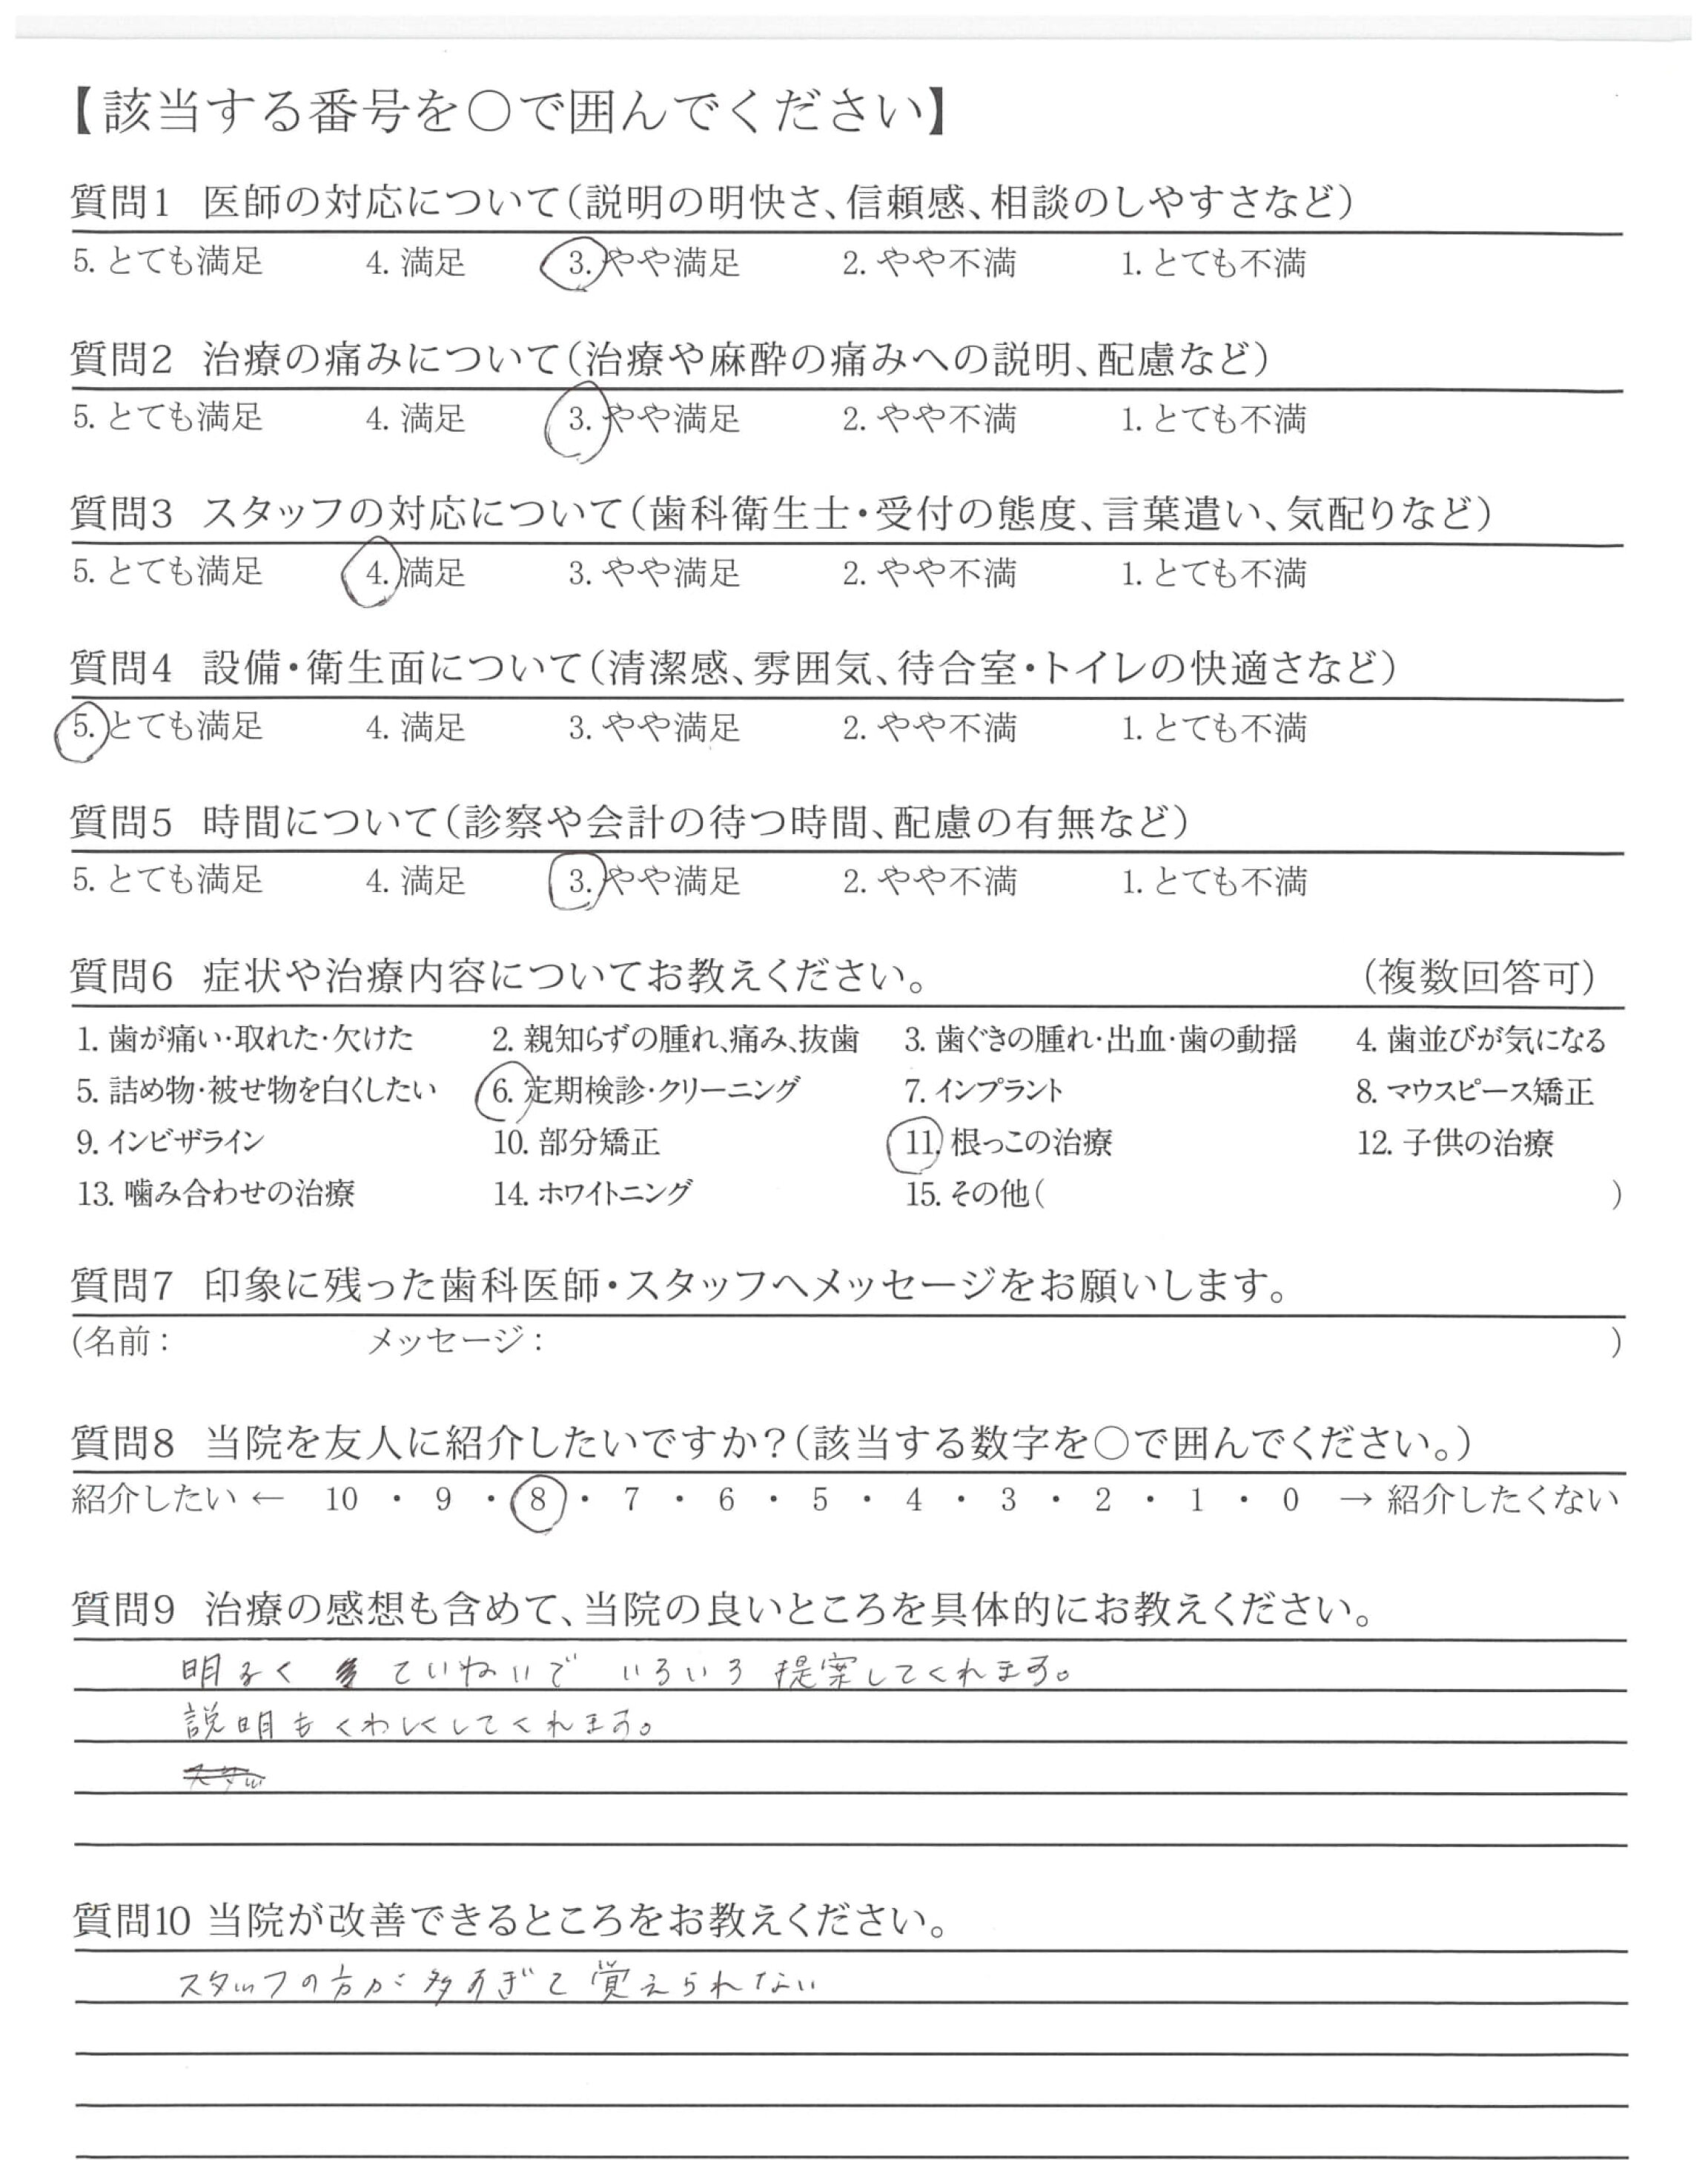 【該当する番号を○で囲んでください】
質問1 医師の対応について(説明の明快さ、信頼感、相談のしやすさなど)
5. とても満足 4. 満足 3. やや満足 2. やや不満 1. とても不満
質問2 治療の痛みについて(治療や麻酔の痛みへの説明、配慮など)
5. とても満足 4. 満足 3. やや満足 2. やや不満 1. とても不満
質問3 スタッフの対応について(歯科衛生士・受付の態度、言葉遣い、気配りなど)
5. とても満足 4. 満足 3. やや満足 2. やや不満 1. とても不満
質問4 設備・衛生面について(清潔感、雰囲気、待合室・トイレの快適さなど)
5. とても満足 4. 満足 3. やや満足 2. やや不満 1. とても不満
質問5 時間について(診察や会計の待つ時間、配慮の有無など)
5. とても満足 4. 満足 3. やや満足 2. やや不満 1. とても不満
質問6 症状や治療内容についてお教えください。 (複数回答可)
1. 歯が痛い・取れた・欠けた 2. 親知らずの腫れ、痛み、抜歯 3. 歯ぐきの腫れ・出血・歯の動揺 4. 歯並びが気になる
5. 詰め物・被せ物を白くしたい 6. 定期検診・クリーニング 7. インプラント 8. マウスピース矯正
9. インビザライン 10. 部分矯正 11. 根っこの治療 12. 子供の治療
13. 噛み合わせの治療 14. ホワイトニング 15. その他( )
質問7 印象に残った歯科医師・スタッフへメッセージをお願いします。
(名前: メッセージ: )
質問8 当院を友人に紹介したいですか?(該当する数字を○で囲んでください。)
紹介したい ← 10 ・ 9 ・ 8 ・ 7 ・ 6 ・ 5 ・ 4 ・ 3 ・ 2 ・ 1 ・ 0 → 紹介したくない
質問9 治療の感想も含めて、当院の良いところを具体的にお教えください。
明るく ていねいで いろいろ 提案してくれます。
説明もくわしくしてくれます。
スタッ
質問10 当院が改善できるところをお教えください。
スタッフの方が多すぎて覚えられない